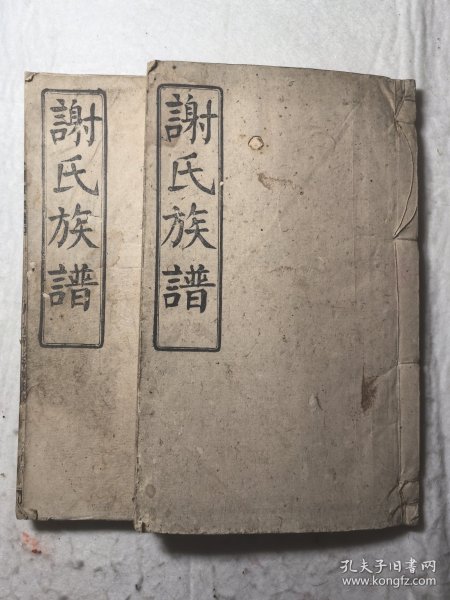 謝氏族譜
謝氏族譜
孔夫子旧书网
www.kongfz.com